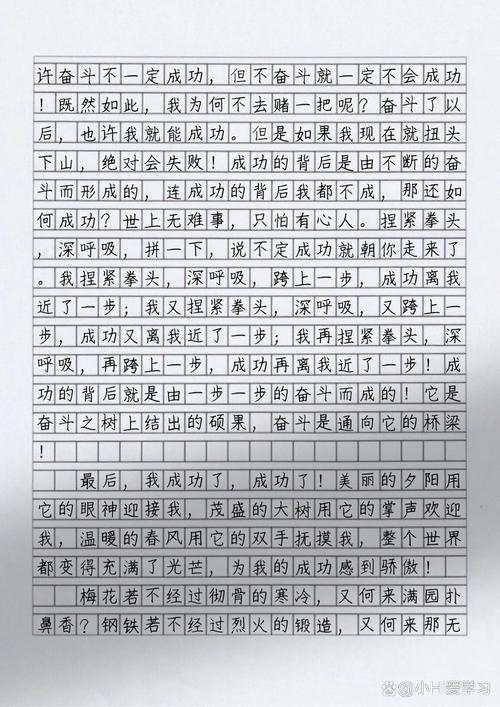 许奋斗不一定成功，但不奋斗就一定不会成功
！既然如此，我为何不去赌一把呢？奋斗了以
后，也许我就能成功。但是如果我现在就扭头
下山，绝对会失败！成功的背后是由不断的奋
斗而形成的，连成功的背后我都不成，那还如
何成功？世上无难事，只怕有心人。捏紧拳头
，深呼吸，拼一下，说不定成功就朝你走来了
。我捏紧拳头，深呼吸，跨上一步，成功离我
近了一步；我又捏紧拳头，深呼吸，又跨上一
步，成功又离我近了一步；我再捏紧拳头，深
呼吸，再跨上一步，成功再离我近了一步！成
功的背后就是由一步一步的奋斗而成的！它是
奋斗之树上结出的硕果，奋斗是通向它的桥梁
！
最后，我成功了，成功了！美丽的夕阳用
它的眼神迎接我，茂盛的大树用它的掌声欢迎
我，温暖的春风用它的双手抚摸我，整个世界
都变得充满了光芒，为我的成功感到骄傲！
梅花若不经过彻骨的寒冷，又何来满园扑
鼻香？钢铁若不经过烈火的锻造，又何来那无